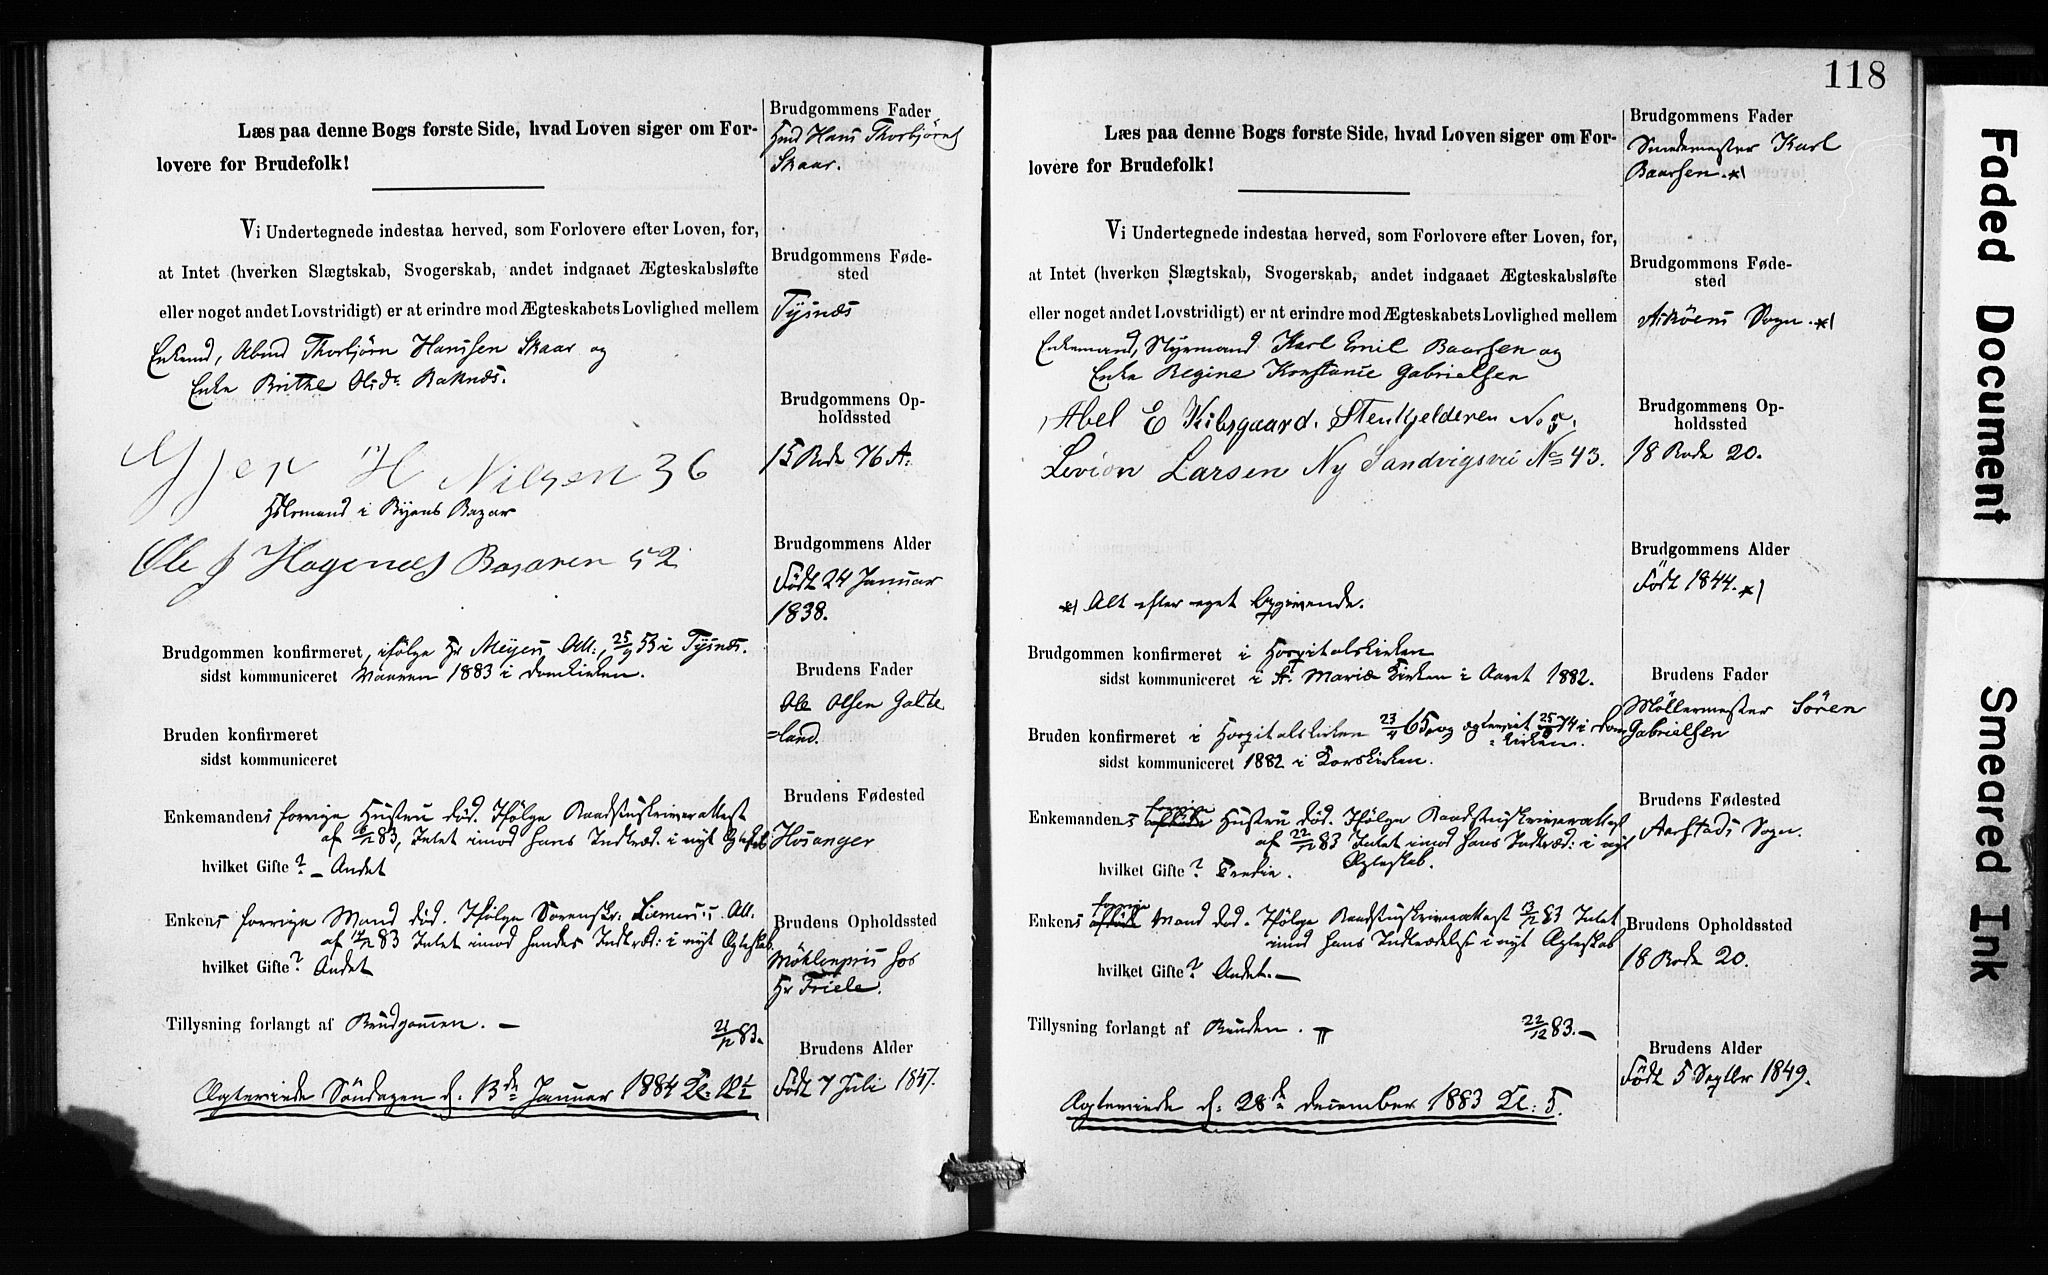 Læs paa denne Bogs første Side, hvad Loven siger om For-
lovere for Brudefolk!
Vi Undertegnede indestaa herved, som Forlovere efter Loven, for,
at Intet (hverken Slægtskab, Svogerskab, andet indgaaet Ægteskabsløfte
eller noget andet Lovstridigt) er at erindre mod Ægteskabets Lovlighed mellem
Enkemd, Abmd Thorbjörn Hanssen Skaar og
Enke Brithe Olsdr Baknæs.
H Nilsen 36
i Byens Bazar
Ole J Hagenæs Basaren 52
Brudgommen konfirmeret, ifølge Hr Meyers Att:, 25/9 53 i Tysnæs.
sidst kommuniceret Vaaren 1883 i Domkirken.
Bruden konfirmeret
sidst kommuniceret
Enkemandens forrige Hustru død. Ifølge Raadstuskriverattest
af 6/12 83, Intet imod hans Indtræd: i nyt Ægtesk
hvilket Gifte? – Andet
Enkens forrige Mand død. Ifølge Sorenskr: Att.
af 14/12 83 Intet imod hendes Indtræd: i nyt Ægteskab.
hvilket Gifte? Andet
Tillysning forlangt af Brudgommen. –
21/12 83.
Ægteviede Søndagen d. 13de Januar 1884 Kl: 12½
Brudgommens Fader
Hmd Hans Thorbjörns
Skaar.
Brudgommens Føde-
sted
Tysnæs
Brudgommens Op-
holdssted
15 Rode 76 A:
Brudgommens Alder
Født 24 Januar
1838.
Brudens Fader
Ole Olsen Galte
=land.
Brudens Fødested
Hosanger
Brudens Opholdssted
Møhlenpris hos
Hr Friele.
Brudens Alder
Født 7 Juli 1847.
118
Læs paa denne Bogs første Side, hvad Loven siger om For-
lovere for Brudefolk!
Vi Undertegnede indestaa herved, som Forlovere efter Loven, for,
at Intet (hverken Slægtskab, Svogerskab, andet indgaaet Ægteskabsløfte
eller noget andet Lovstridigt) er at erindre mod Ægteskabets Lovlighed mellem
Enkemand, Styrmand Karl Emil Baarsen og
Enke Regine Konstanse Gabrielsen
Abel E Kibsgaard. Stenkjelderen No 5.
Levion Larsen Ny Sandvigsvei No 43.
*) Alt efter eget Opgivende.
Brudgommen konfirmeret i Hospitalskirken
sidst kommuniceret i St Mariæ Kirken i Aaret 1882.
Bruden konfirmeret i Hospitalskirken 23/4 65, og ægteviet 25/9 74 i Dom
=kirken.
sidst kommuniceret 1882 i Korskirken.
Enkemandens forrige Hustru død. Ifølge Raadstuskriverattest
af 22/12 83 Intet imod hans Indtræd: i nyt
Ægteskab.
hvilket Gifte? Tredie.
Enkens forrige Mand død. Ifølge Raadstuskriverattest 13/12 83 Intet
imod hans Indtrædelse i nyt Ægteskab
hvilket Gifte? Andet. –
Tillysning forlangt af Bruden.
22/12 83. –
Ægteviede d: 28de December 1883 Kl: 5.
Brudgommens Fader
Smedemester Karl
Baarsen. *)
Brudgommens Føde-
sted
Askøens Sogn. *)
Brudgommens Op-
holdssted
18 Rode 20.
Brudgommens Alder
Født 1844. *)
Brudens Fader
Møllermester Sören
Gabrielsen
Brudens Fødested
Aarstads Sogn.
Brudens Opholdssted
18 Rode 20.
Brudens Alder
Født 5 Septbr 1849.
Faded Document
Smeared Ink